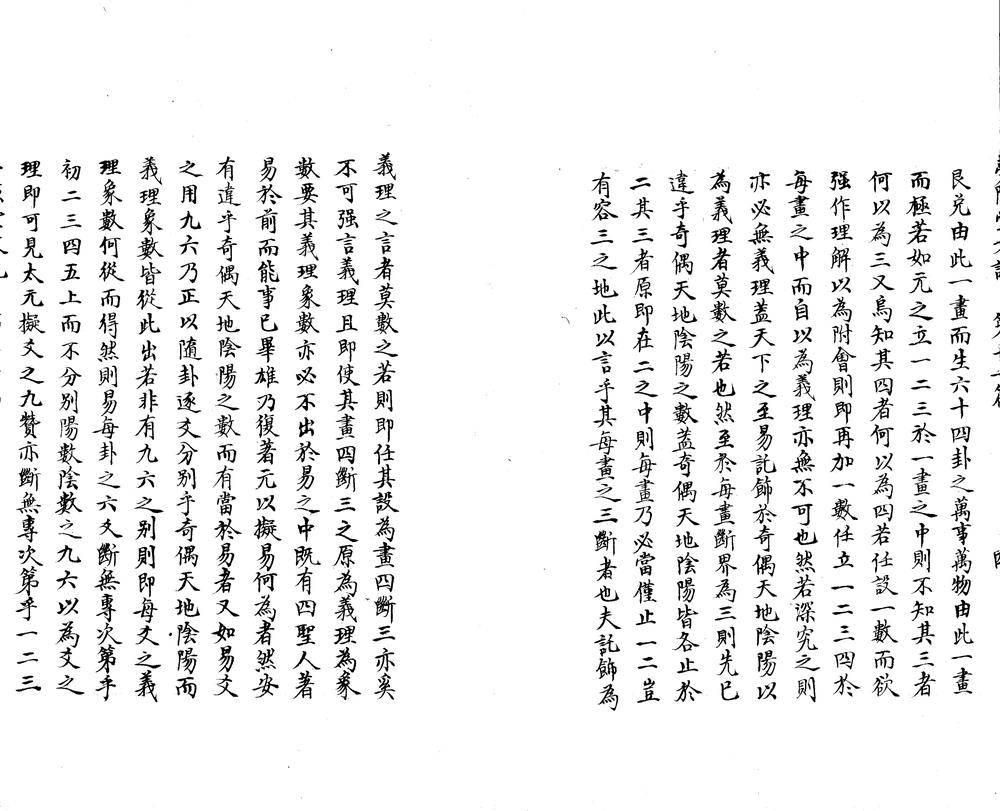 艮兑由此一畫而生六十四卦之萬事萬物由此一畫
而極若如元之立一二三於一畫之中則不知其三者
何以為三又烏知其四者何以為四若任設一數而欲
强作理解以為附會則即再加一數任立一二三四於
每畫之中而自以為義理亦無不可也然若深究之則
亦必無義理蓋天下之至易託飾於奇偶天地陰陽以
為義理者莫數之若也然至於每畫斷界為三則先已
違乎奇偶天地陰陽之數蓋奇偶天地陰陽皆各止於
二其三者原即在二之中則每畫乃必當僅止一二豈
有容三之地此以言乎其每畫之三斷者也夫託飾為
義理之言者莫數之若則即任其設為畫四斷三亦奚
不可强言義理且即使其畫四斷三之原為義理為象
數要其義理象數亦必不出於易之中既有四聖人著
易於前而能事已畢雄乃復著元以擬易何為者然安
有違乎奇偶天地陰陽之數而有當於易者又如易爻
之用九六乃正以隨卦逐爻分别乎奇偶天地陰陽而
義理象數皆從此出若非有九六之别則即每爻之義
理象數何從而得然則易每卦之六爻斷無專次第乎
初二三四五上而不分别陽數陰數之九六以為爻之
理即可見太元擬爻之九贊亦斷無專次第乎一二三